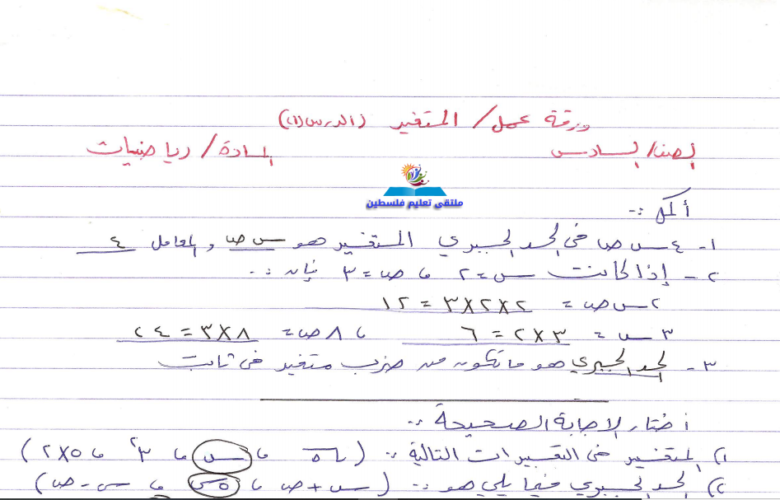 ورقة عمل / المتغير (الدرس (١))
الصف/ السادس المادة / رياضيات
ملتقى تعليم فلسطين
أكمل :-
١- ٤ س ص في الحد الجبري المتغير هو س ص و المعامل ٤
٢- إذا كانت س = ٢ ، ص = ٣ فإن :-
٢ س ص = ٢ × ٢ × ٣ = ١٢
٣ س = ٣ × ٢ = ٦ ، ٨ ص = ٨ × ٣ = ٢٤
٣- الحد الجبري هو ما تكون من ضرب متغير في ثابت
أختار الإجابة الصحيحة :-
١) المتغير في التعبيرات التالية :- ( ، س ، ٣² ، ٥ × ٢ )
٢) الحد الجبري فيما يلي هو :- ( س + ص ، ٥س ، س - ص )